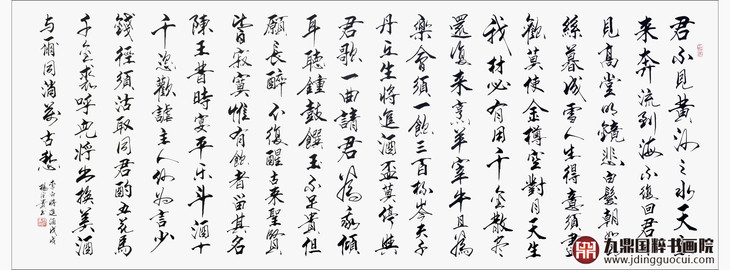 君不见黄河之水天上
来奔流到海不复回君不
见高堂明镜悲白髮朝如青
丝暮成雪人生得意须尽
歡莫使金樽空對月天生
我材必有用千金散盡
還復来烹羊宰牛且為
樂會須一飲三百杯岑夫子
丹丘生將進酒盃莫停與
君歌一曲請君為我傾
耳聽鐘鼓饌玉不足貴但
願長醉不復醒古来聖賢
皆寂寞惟有飲者留其名
陳王昔時宴平乐斗酒十
千恣歡謔主人何為言少
錢徑須沽取同君酌五花馬
千金裘呼兒將出換美酒
与爾同消萬古愁
李白將進酒戊戌
九鼎国粹书画院
www.jdingguocui.com